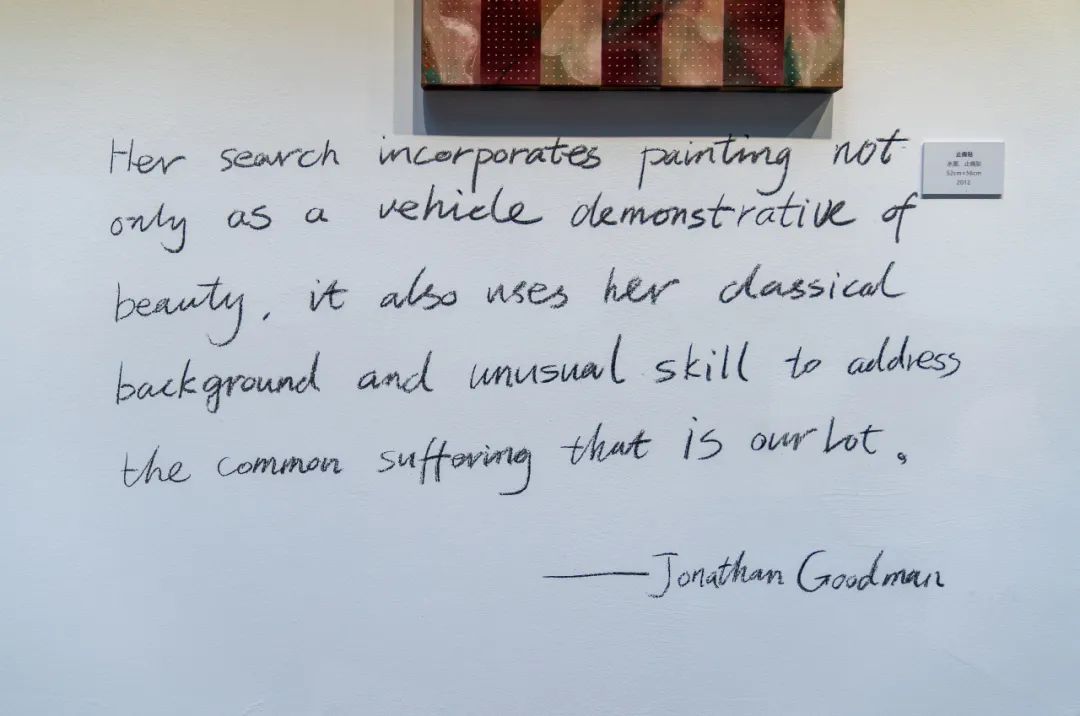 Her search incorporates painting not
only as a vehicle demonstrative of
beauty, it also uses her classical
background and unusual skill to address
the common suffering that is our lot。
——Jonathan Goodman
止痛贴
水墨、止痛贴
52cm×56cm
2012